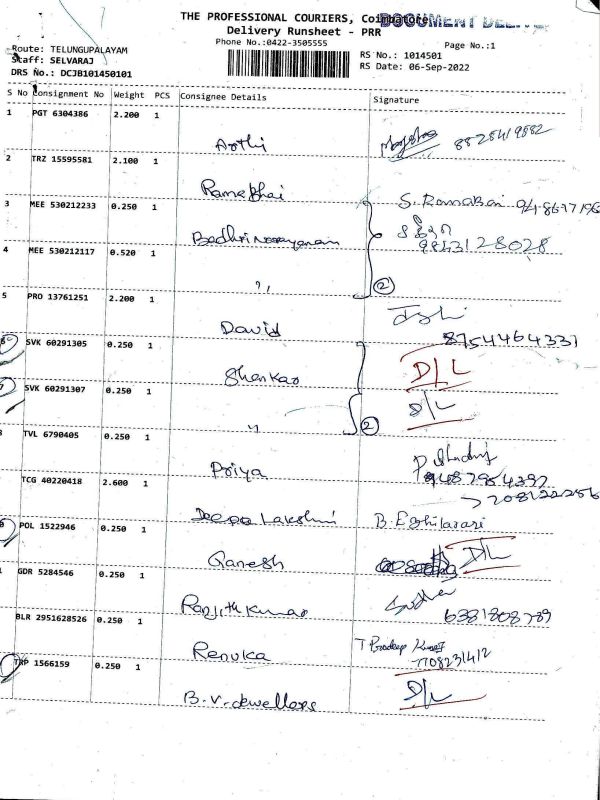 THE PROFESSIONAL COURIERS, Coimbatore
DOCUMENT DELIVE
Delivery Runsheet - PRR
Phone No.:0422-3505555
Page No.:1
Route: TELUNGUPALAYAM
RS No.: 1014501
Staff: SELVARAJ
RS Date: 06-Sep-2022
DRS No.: DCJB101450101
S No Consignment No Weight PCS Consignee Details Signature
1 PGT 6304386 2.200 1
Arthi 8825419882
2 TRZ 15595581 2.100 1
Ramabhai S. Ramabai
3 MEE 530212233 0.250 1
Badhrinarayanan 9843128028
4 MEE 530212117 0.520 1
" (2)
5 PRO 13761251 2.200 1
David 8754464331
6 SVK 60291305 0.250 1
Shankar D/L
7 SVK 60291307 0.250 1
" (2) D/L
TVL 6790405 0.250 1
Priya 9487954397
TCG 40220418 2.600 1
7081222256
Deepa Lakshmi B. Eghilarasi
0 POL 1522946 0.250 1
Ganesh D/L
1 GDR 5284546 0.250 1
Ranjith Kumar 6381808789
BLR 2951628526 0.250 1
Renuka T Pradeep Kumar
7708231412
TRP 1566159 0.250 1
B.V. Jewellers D/L